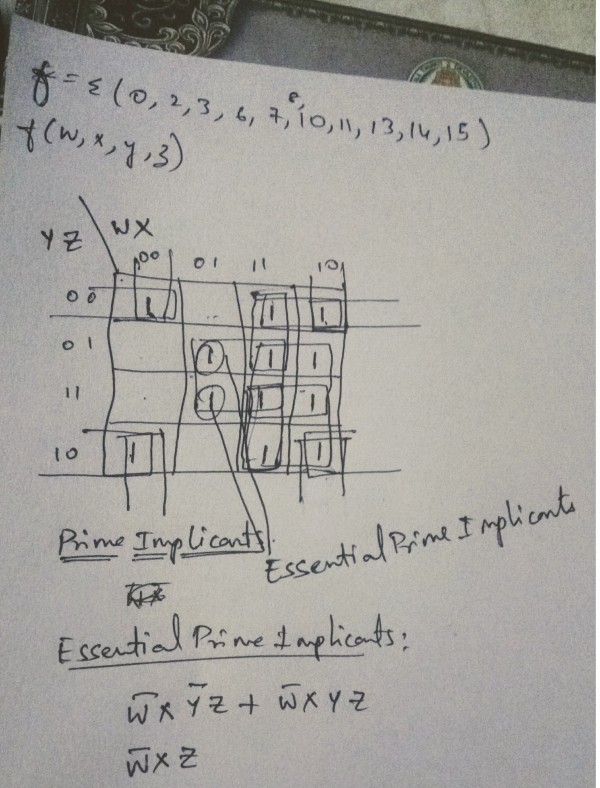 f = Σ (0, 2, 3, 6, 7, 8, 10, 11, 13, 14, 15)
f(w, x, y, z)
YZ WX
00 01 11 10
00 1 1 1
01 1 1 1
11 1 1 1
10 1 1 1
Prime Implicants
Essential Prime Implicants
Essential Prime Implicants:
W̄ X Ȳ Z + W̄ X Y Z
W̄ X Z